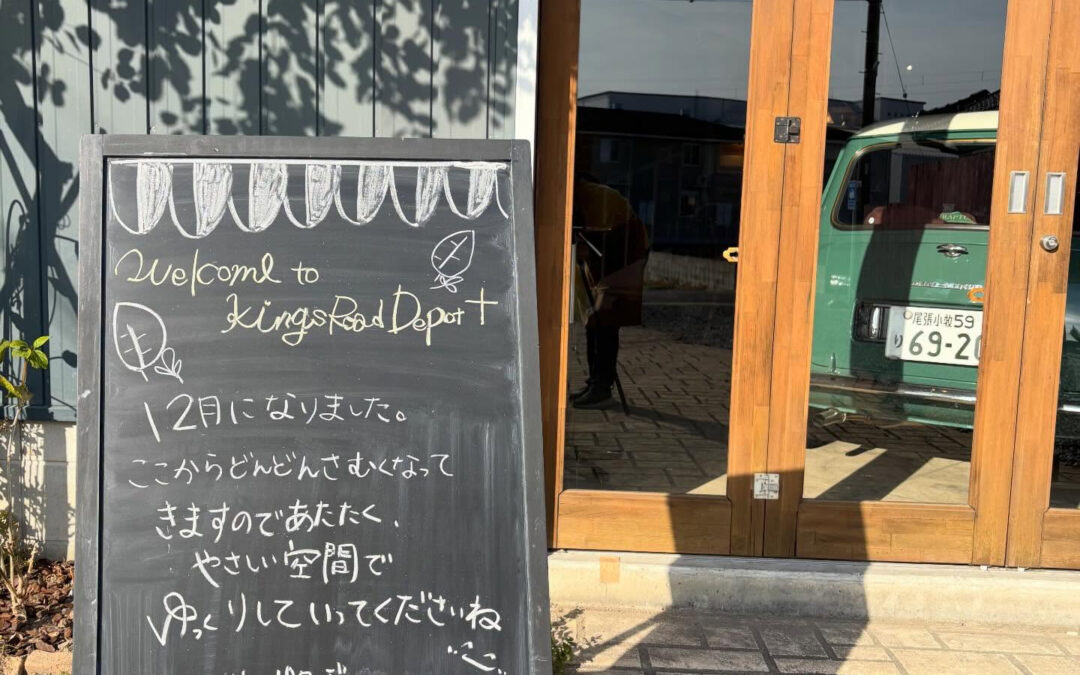 Welcome to
KingsRoad Depot
12月になりました。
ここからどんどんさむくなって
きますのであたたく、
やさしい空間で
ゆっくりしていってくださいね
尾張小牧59
り 69-20